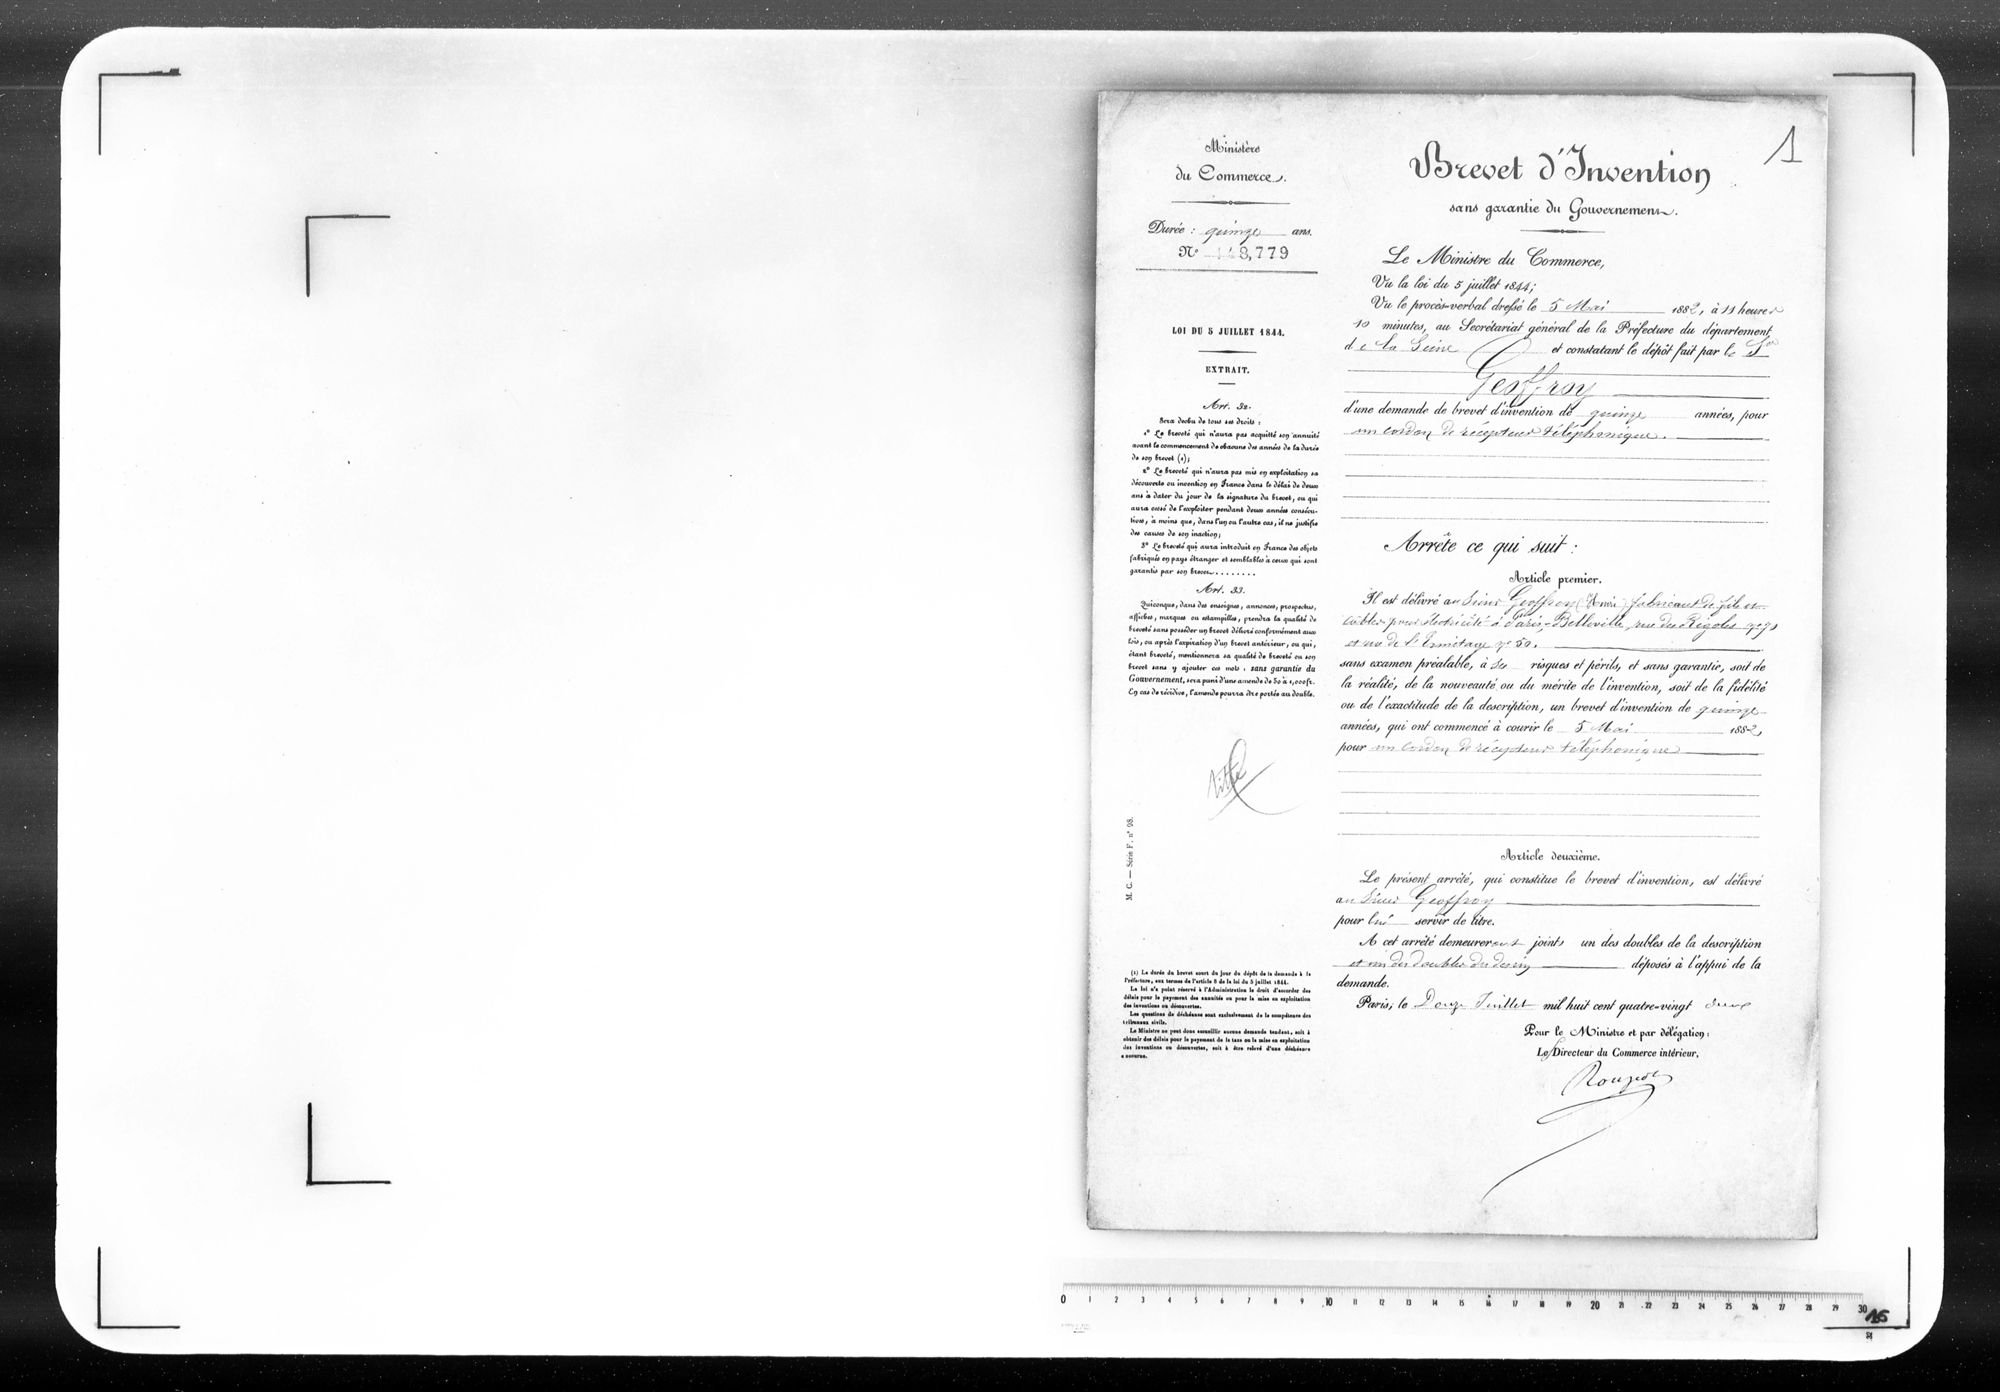 Ministère
du Commerce.
Durée : quinze ans.
N° 148,779
LOI DU 5 JUILLET 1844.
EXTRAIT.
Art. 32.
Sera déchu de tous ses droits :
1° Le breveté qui n'aura pas acquitté son annuité
avant le commencement de chacune des années de la durée
de son brevet (1);
2° Le breveté qui n'aura pas mis en exploitation sa
découverte ou invention en France dans le délai de deux
ans à dater du jour de la signature du brevet, ou qui
aura cessé de l'exploiter pendant deux années consécu-
tives, à moins que, dans l'un ou l'autre cas, il ne justifie
des causes de son inaction;
3° Le breveté qui aura introduit en France des objets
fabriqués en pays étranger et semblables à ceux qui sont
garantis par son brevet........
Art. 33.
Quiconque, dans des enseignes, annonces, prospectus,
affiches, marques ou estampilles, prendra la qualité de
breveté sans posséder un brevet délivré conformément aux
lois, ou après l'expiration d'un brevet antérieur, ou qui,
étant breveté, mentionnera sa qualité de breveté ou son
brevet sans y ajouter ces mots : sans garantie du
Gouvernement, sera puni d'une amende de 50 à 1,000 fr.
En cas de récidive, l'amende pourra être portée au double.
titre
M. C. — Série F. n° 98.
(1) La durée du brevet court du jour du dépôt de la demande à la
Préfecture, aux termes de l'article 8 de la loi du 5 juillet 1844.
La loi n'a point réservé à l'Administration le droit d'accorder des
délais pour le payement des annuités ou pour la mise en exploitation
des inventions ou découvertes.
Les questions de déchéance sont exclusivement de la compétence des
tribunaux civils.
Le Ministre ne peut donc accueillir aucune demande tendant, soit à
obtenir des délais pour le payement de la taxe ou la mise en exploitation
des inventions ou découvertes, soit à être relevé d'une déchéance
encourue.
1
Brevet d'Invention
sans garantie du Gouvernement.
Le Ministre du Commerce,
Vu la loi du 5 juillet 1844;
Vu le procès-verbal dressé le 5 Mai 1882, à 11 heures
10 minutes, au Secrétariat général de la Préfecture du département
de la Seine et constatant le dépôt fait par le Sr
Geoffroy
d'une demande de brevet d'invention de quinze années, pour
un cordon de récepteur téléphonique.
Arrête ce qui suit :
Article premier.
Il est délivré au Sieur Geoffroy (Henri) fabricant de fils et
câbles pour électricité à Paris-Belleville, rue des Rigoles n°
et rue de l'Ermitage n° 50.
sans examen préalable, à ses risques et périls, et sans garantie, soit de
la réalité, de la nouveauté ou du mérite de l'invention, soit de la fidélité
ou de l'exactitude de la description, un brevet d'invention de quinze
années, qui ont commencé à courir le 5 Mai 1882,
pour un cordon de récepteur téléphonique
Article deuxième.
Le présent arrêté, qui constitue le brevet d'invention, est délivré
au Sieur Geoffroy
pour lui servir de titre.
A cet arrêté demeureront joints un des doubles de la description
et un des doubles du dessin déposés à l'appui de la
demande.
Paris, le Douze Juillet mil huit cent quatre-vingt deux
Pour le Ministre et par délégation :
Le Directeur du Commerce intérieur,
0 1 2 3 4 5 6 7 8 9 10 11 12 13 14 15 16 17 18 19 20 21 22 23 24 25 26 27 28 29 30